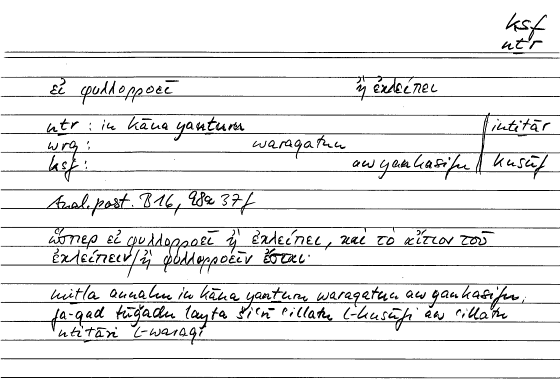 ksf
nṯr
εἰ φυλλορροεῖ ἢ ἐκλείπει
nṯr : in kāna yanṯuru intiṯār
wrq : waraqatun
ksf : aw yankasifu kusūf
Anal. post. B 16, 98a 37f
ὥσπερ εἰ φυλλορροεῖ ἢ ἐκλείπει, καὶ τὸ αἴτιον τοῦ
ἐκλείπειν/ἢ φυλλορροεῖν ἔσται·
miṯla annahu in kāna yanṯuru waraqatun aw yankasifu,
fa-qad tūǧadu layta šiʿrī ʿillatu l-kusūfi aw ʿillatu
ntiṯāri l-waraqi